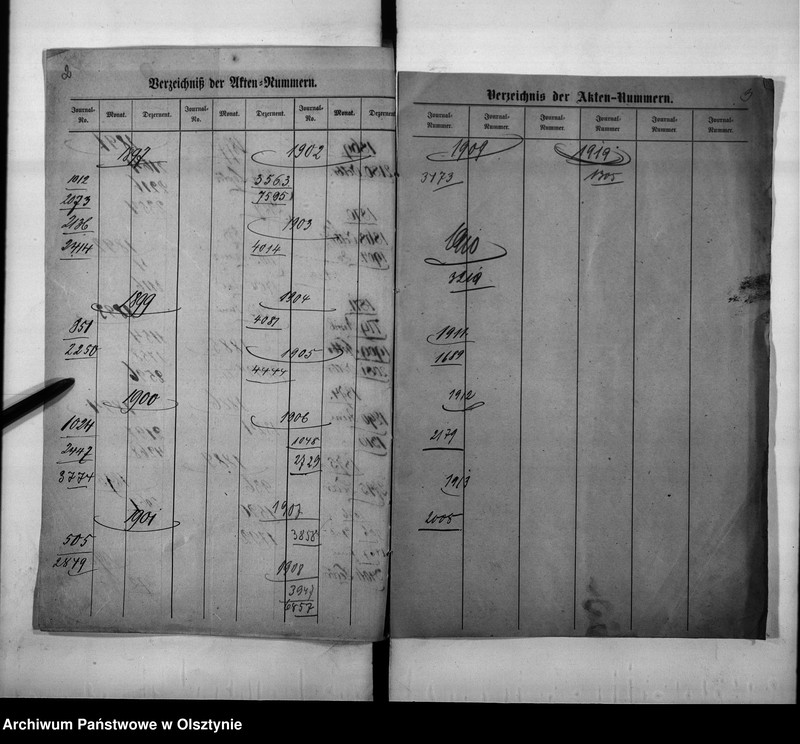 2
Verzeichniß der Akten=Nummern.
Journal-No. Monat. Dezernent. Journal-No. Monat. Dezernent. Journal-No. Monat. Dezernent
1897
1012
2073
2136
2414
1899
351
2250
1900
1024
2447
3774
1901
505
2849
1902
3563
7595
1903
4014
1904
4087
1905
4444
1906
1048
2729
1907
3858
1908
3947
6857
Verzeichnis der Akten-Nummern.
3
Journal-Nummer. Journal-Nummer. Journal-Nummer. Journal-Nummer Journal-Nummer. Journal-Nummer.
1909
3173
1910
3219
1911
1689
1912
2179
1913
2005
1919
1305
Archiwum Państwowe w Olsztynie